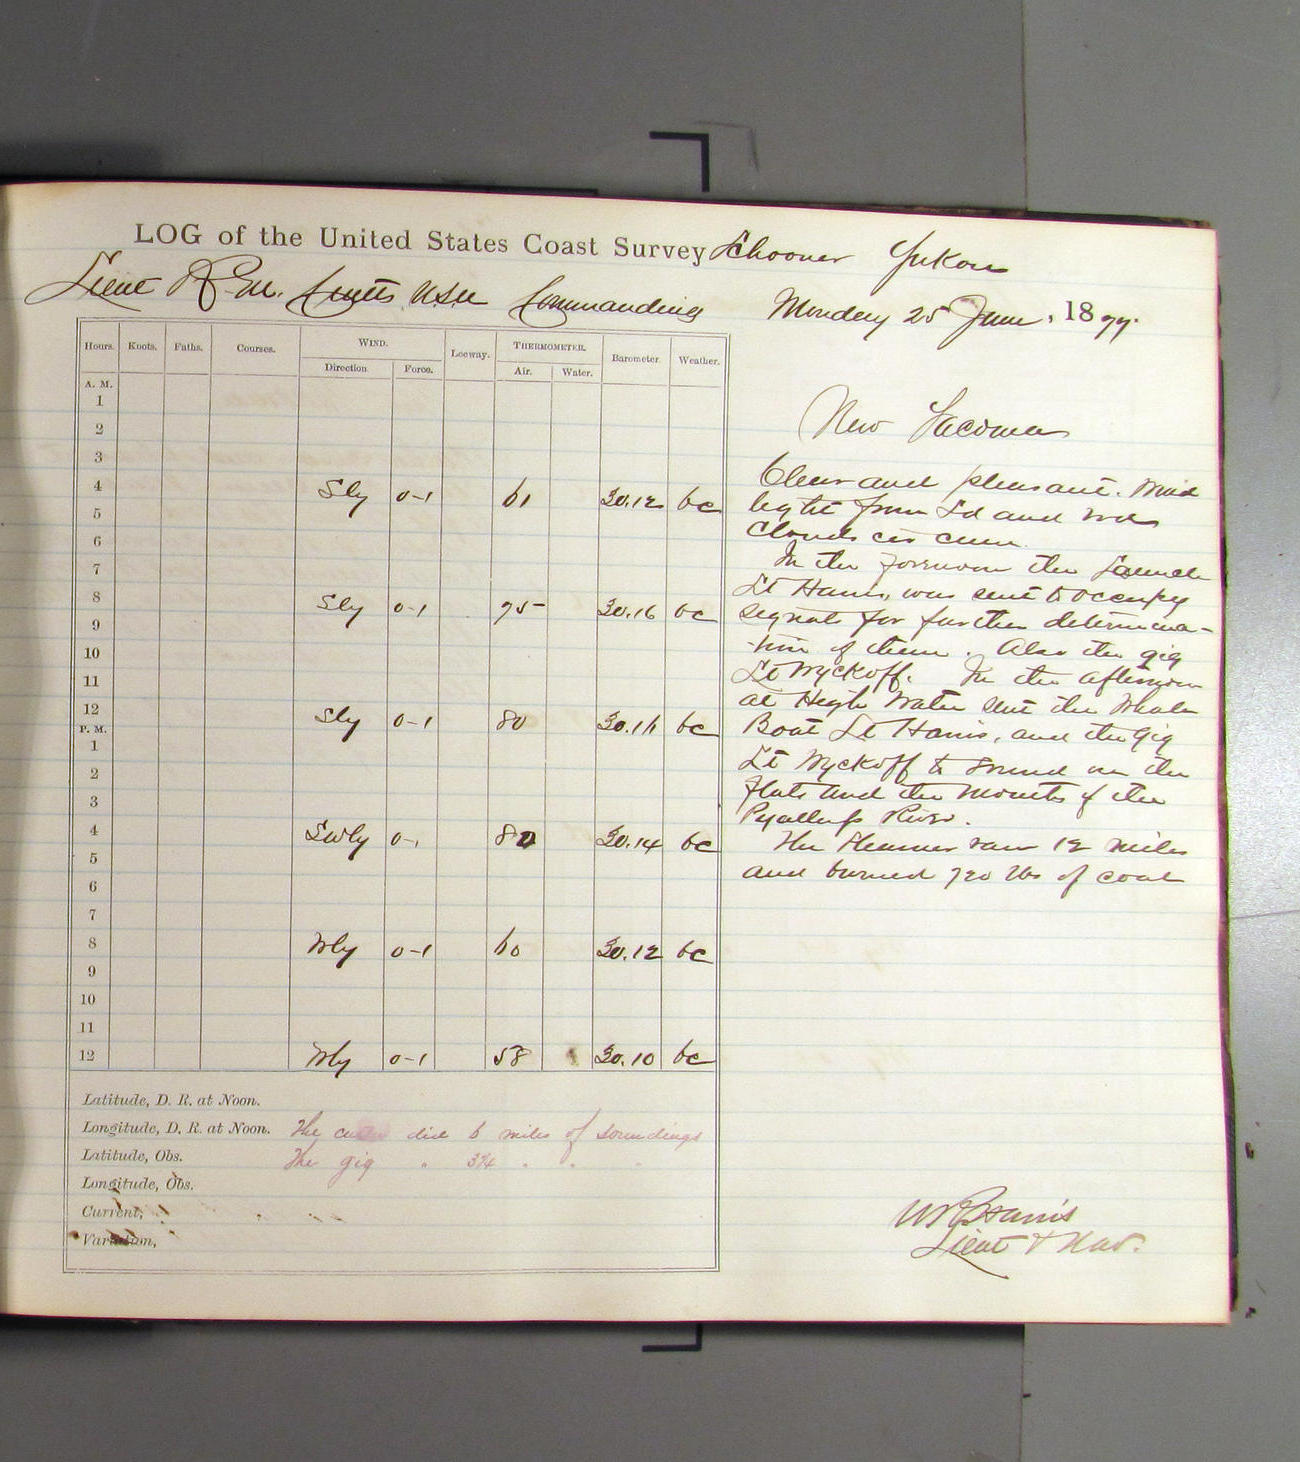 LOG of the United States Coast Survey Schooner Yukon
Lieut R. M. Cutts U.S.N Commanding
Monday 25 June, 1877.
Hours. Knots. Faths. Courses. WIND. Leeway. THERMOMETER. Barometer. Weather.
Direction. Force. Air. Water.
A. M.
1
2
3
4 Sly 0-1 61 30.12 bc
5
6
7
8 Sly 0-1 75 30.16 bc
9
10
11
12 Sly 0-1 80 30.16 bc
P. M.
1
2
3
4 SWly 0-1 80 30.14 bc
5
6
7
8 Wly 0-1 60 30.12 bc
9
10
11
12 Wly 0-1 58 30.10 bc
Latitude, D. R. at Noon.
Longitude, D. R. at Noon. The did 6 miles of soundings
Latitude, Obs. The gig " 3¼ " " "
Longitude, Obs.
Current,
Variation,
New Tacoma
Clear and pleasant. Wind
light from Sd and Wd
Clouds cir cum.
In the forenoon the Launch
Lt Harris, was sent to occupy
signals for further determina-
-tion of them. Also the gig
Lt Wyckoff. In the afternoon
at High Water sent the Whale
Boat Lt Harris, and the gig
Lt Wyckoff to sound on the
flats and the mouth of the
Puyallup River.
The Steamer ran 12 miles
and burned 720 lbs of coal
Harris
Lieut & Nav.